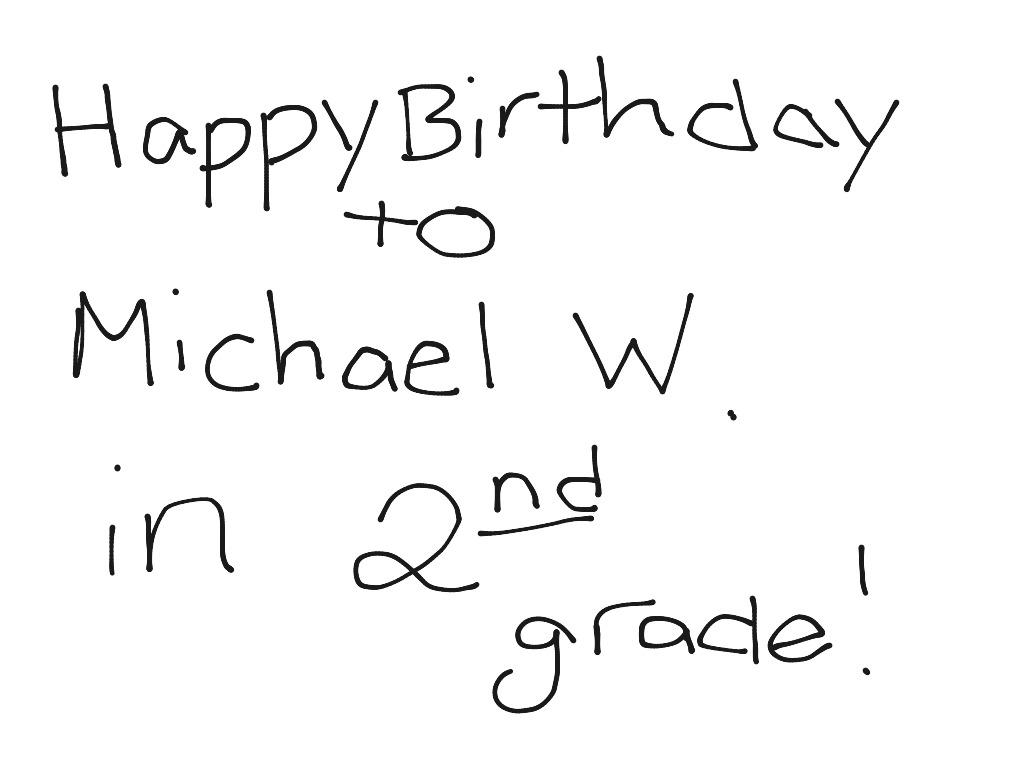 Happy Birthday
to
Michael W.
in 2nd
grade!